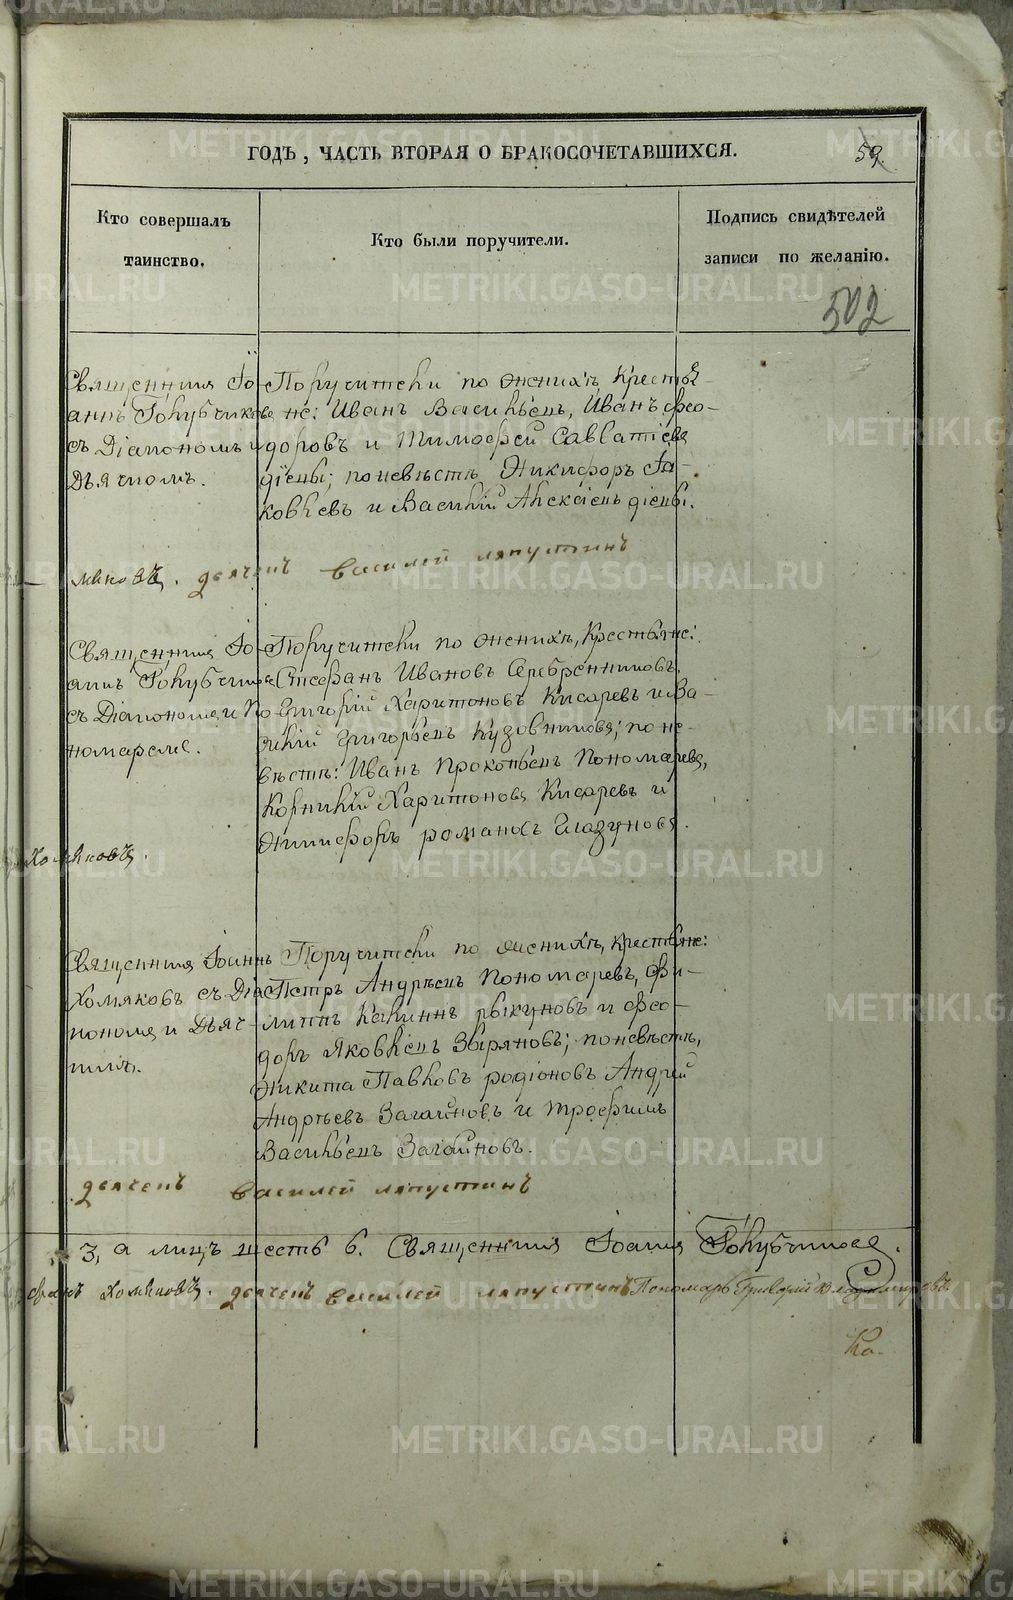 ГОДЪ, ЧАСТЬ ВТОРАЯ О БРАКОСОЧЕТАВШИХСЯ.
59.
Кто совершалъ
таинство.
Кто были поручители.
Подпись свидѣтелей
записи по желанію.
502
Священникъ Іо-
аннъ Голубчиковъ
съ Діакономъ и
Дьячкомъ.
Поручители по женихѣ Крестья-
не: Иванъ Васильевъ, Иванъ Фео-
доровъ и Тимофей Савватіевъ
по невѣстѣ Никифоръ Яа-
ковлевъ и Василій Алексіевъ
дьячекъ василей ляпустинъ
Священникъ Іо-
аннъ Голубчиковъ
съ Діакономъ и По-
номаремъ.
Поручители по женихѣ, Крестьяне:
Стефанъ Ивановъ Серебренниковъ,
Григорій Харитоновъ Кисаревъ и Ва-
силій Григорьевъ Кузовниковъ; по не-
вѣстѣ: Иванъ Прокопьевъ Пономаревъ,
Корнилій Харитоновъ Кисаревъ и
Никифоръ романовъ Глазуновъ.
Хомяковъ.
Священникъ Іоаннъ
Хомяковъ съ Діа-
кономъ и Дьяч-
комъ.
Поручители по женихѣ, крестьяне:
Петръ Андрѣевъ Пономаревъ, Фи-
липпъ Калинъ рыкуновъ и Фео-
доръ Яковлевъ Звѣряновъ; по невѣстѣ,
Никита Павловъ родіоновъ Андрей
Андрѣевъ Загайновъ и Трофимъ
Васильевъ Загайновъ.
дьячекъ василей ляпустинъ
3, а лицъ шесть 6. Священникъ Іоаннъ Голубчиковъ.
Хомяковъ. дьячекъ василей ляпустинъ Пономарь Григорій Владимировъ